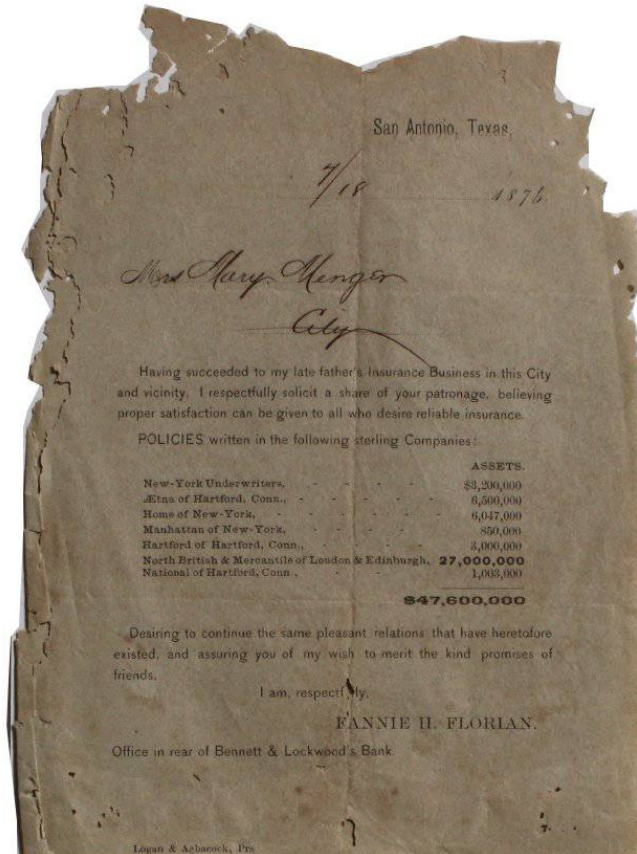 San Antonio, Texas,
7/18 1876.
Mrs Mary Menger
City
Having succeeded to my late father's Insurance Business in this City
and vicinity. I respectfully solicit a share of your patronage, believing
proper satisfaction can be given to all who desire reliable insurance.
POLICIES written in the following sterling Companies:
ASSETS.
New-York Underwriters, - - - - - $3,200,000
Ætna of Hartford, Conn., - - - - - 6,500,000
Home of New-York, - - - - - - 6,047,000
Manhattan of New-York, - - - - - 850,000
Hartford of Hartford, Conn., - - - - 3,000,000
North British & Mercantile of London & Edinburgh, 27,000,000
National of Hartford, Conn., - - - 1,003,000
$47,600,000
Desiring to continue the same pleasant relations that have heretofore
existed, and assuring you of my wish to merit the kind promises of
friends,
I am, respectf ly,
FANNIE H. FLORIAN.
Office in rear of Bennett & Lockwood's Bank.
Logan &